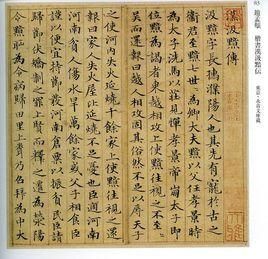 63 趙孟頫 楷書漢汲黯傳
東京・永青文庫藏
漢汲黯傳
汲黯字長孺濮陽人也其先有寵於古之
衛君至黯七世為卿大夫黯以父任孝景時
為太子洗馬以莊見憚孝景帝崩太子即
位黯為謁者東越相攻上使黯往視之不至
吳而還報曰越人相攻固其俗然不足以辱天子
之使河內失火延燒千餘家上使黯往視還
報曰家人失火屋比延燒不足憂也臣過河南
貧人傷水旱萬餘家或父子相食臣謹以便
宜持節發河南倉粟以振貧民臣請
歸節伏矯制之罪上賢而釋之遷為滎陽
令黯恥為令病歸田里上聞乃召拜為中大